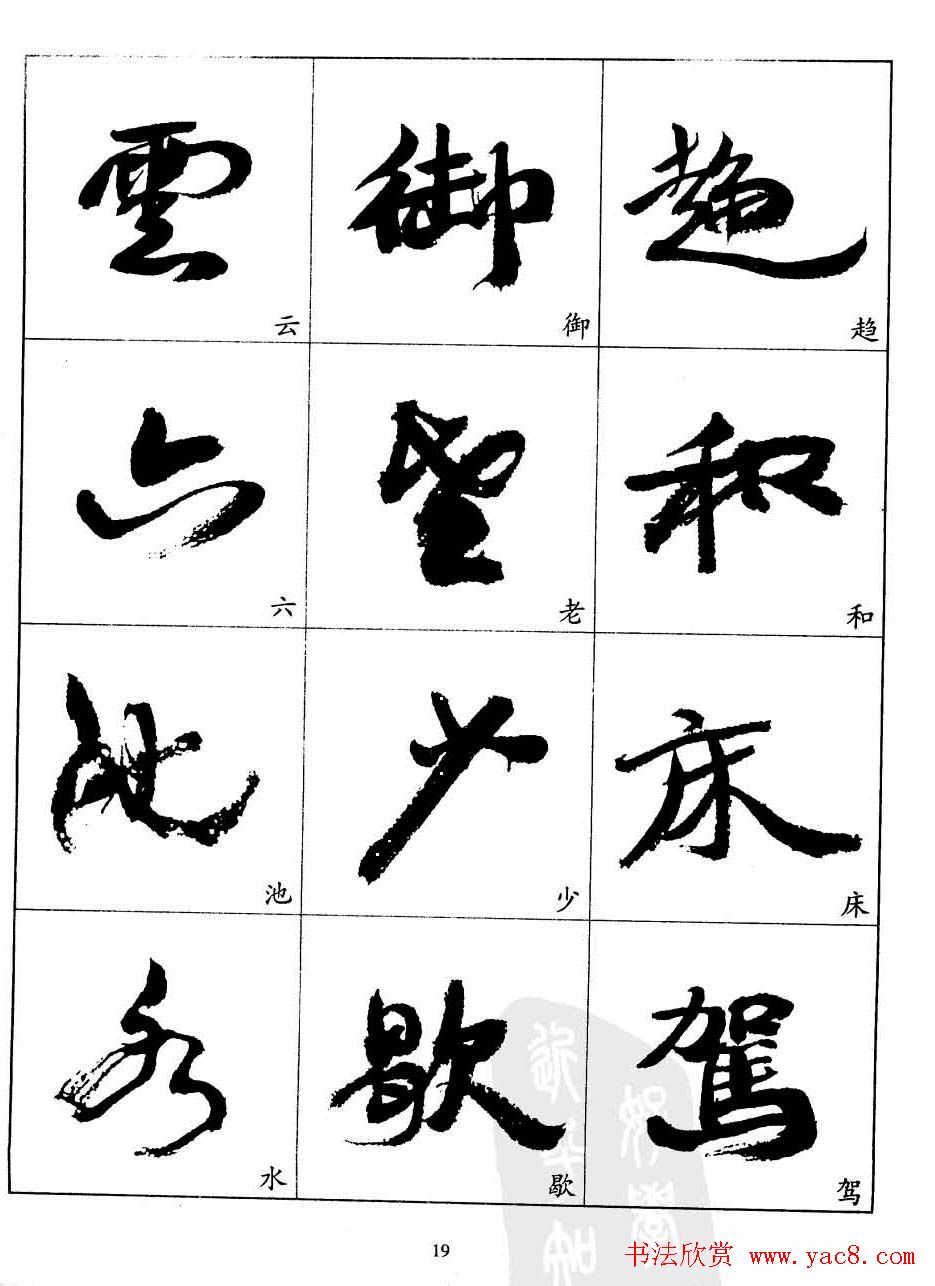 雲 御 趨
云 御 趋
六 望 和
六 老 和
池 少 床
池 少 床
水 歇 駕
水 歇 驾
19
书法欣赏 www.yac8.com